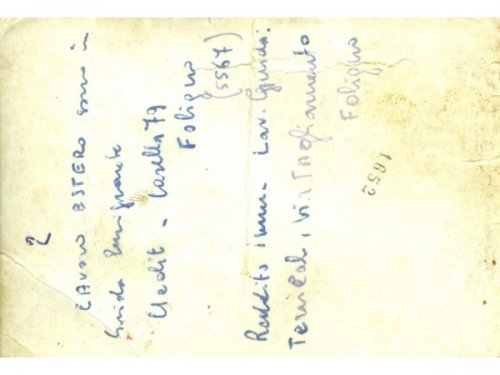 2
LAVORO ESTERO
Guida Emigrante
Gedit - Casella 79
Foligno
(5567)
Reddito imm. Lav. Guida:
Via Tagliamento
Foligno
1652